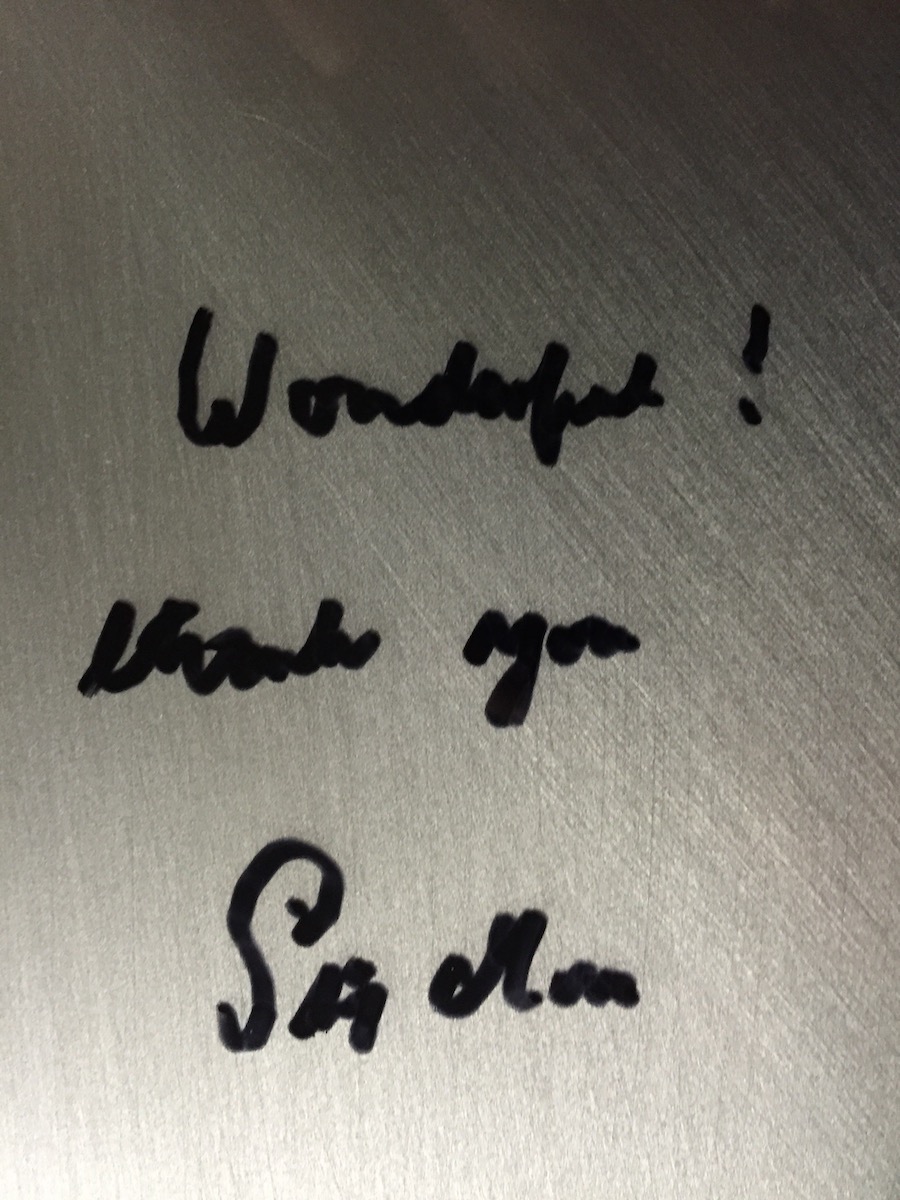 Wonderful !
thanks you